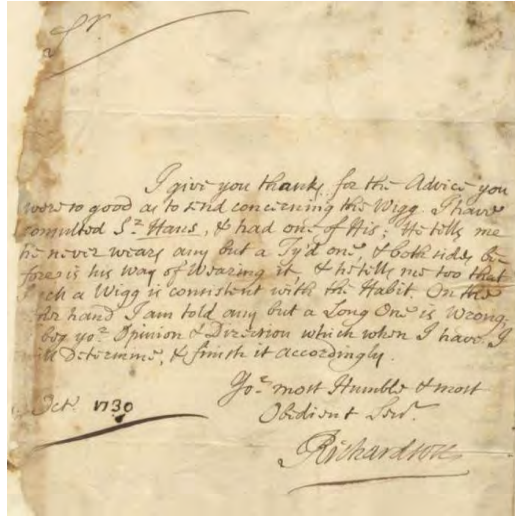 Sr.
I give you thanks for the Advice you
were so good as to send concerning the Wigg. I have
consulted Sr. Hans, & had one of His; He tells me
he never wears any but a Ty'd one, & both sides be
fore is his Way of Wearing it, & he tells me too that
such a Wigg is consistent with the Habit. On the
other hand I am told any but a Long One is Wrong.
beg yor. Opinion & Direction which when I have I
will Determine, & finish it accordingly.
Yor. most Humble & most
Obedient Serv.
Oct. 1730
JRichardson